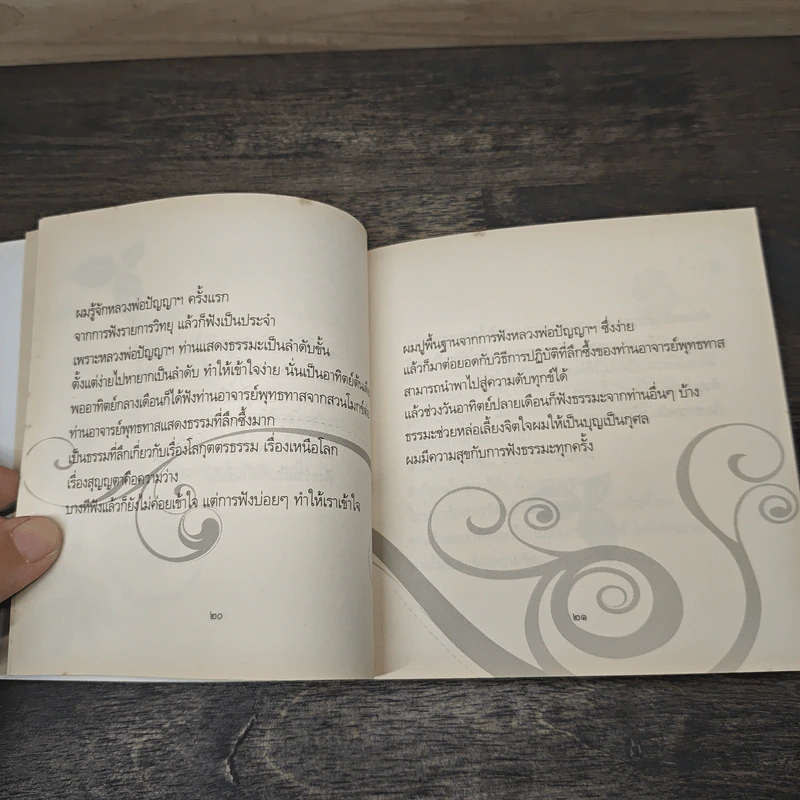 ผมรู้จักหลวงพ่อปัญญาฯ ครั้งแรก
จากการฟังรายการวิทยุ แล้วก็ฟังเป็นประจำ
เพราะหลวงพ่อปัญญาฯ ท่านแสดงธรรมะเป็นลำดับขั้น
ตั้งแต่ง่ายไปหายากเป็นลำดับ ทำให้เข้าใจง่าย นั่นเป็นอาทิตย์ต้น
พออาทิตย์กลางเดือนก็ได้ฟังท่านอาจารย์พุทธทาสจากสวนโมกข์
ท่านอาจารย์พุทธทาสแสดงธรรมที่ลึกซึ้งมาก
เป็นธรรมที่ลึกเกี่ยวกับเรื่องโลกุตตรธรรม เรื่องเหนือโลก
เรื่องสุญญตาคือความว่าง
บางทีฟังแล้วก็ยังไม่ค่อยเข้าใจ แต่การฟังบ่อยๆ ทำให้เราเข้าใจ
๒๐
ผมปูพื้นฐานจากการฟังหลวงพ่อปัญญาฯ ซึ่งง่าย
แล้วก็มาต่อยอดกับวิธีการปฏิบัติที่ลึกซึ้งของท่านอาจารย์พุทธทาส
สามารถนำพาไปสู่ความดับทุกข์ได้
แล้วช่วงวันอาทิตย์ปลายเดือนก็ฟังธรรมะจากท่านอื่นๆ บ้าง
ธรรมะช่วยหล่อเลี้ยงจิตใจผมให้เป็นบุญเป็นกุศล
ผมมีความสุขกับการฟังธรรมะทุกครั้ง
๒๑